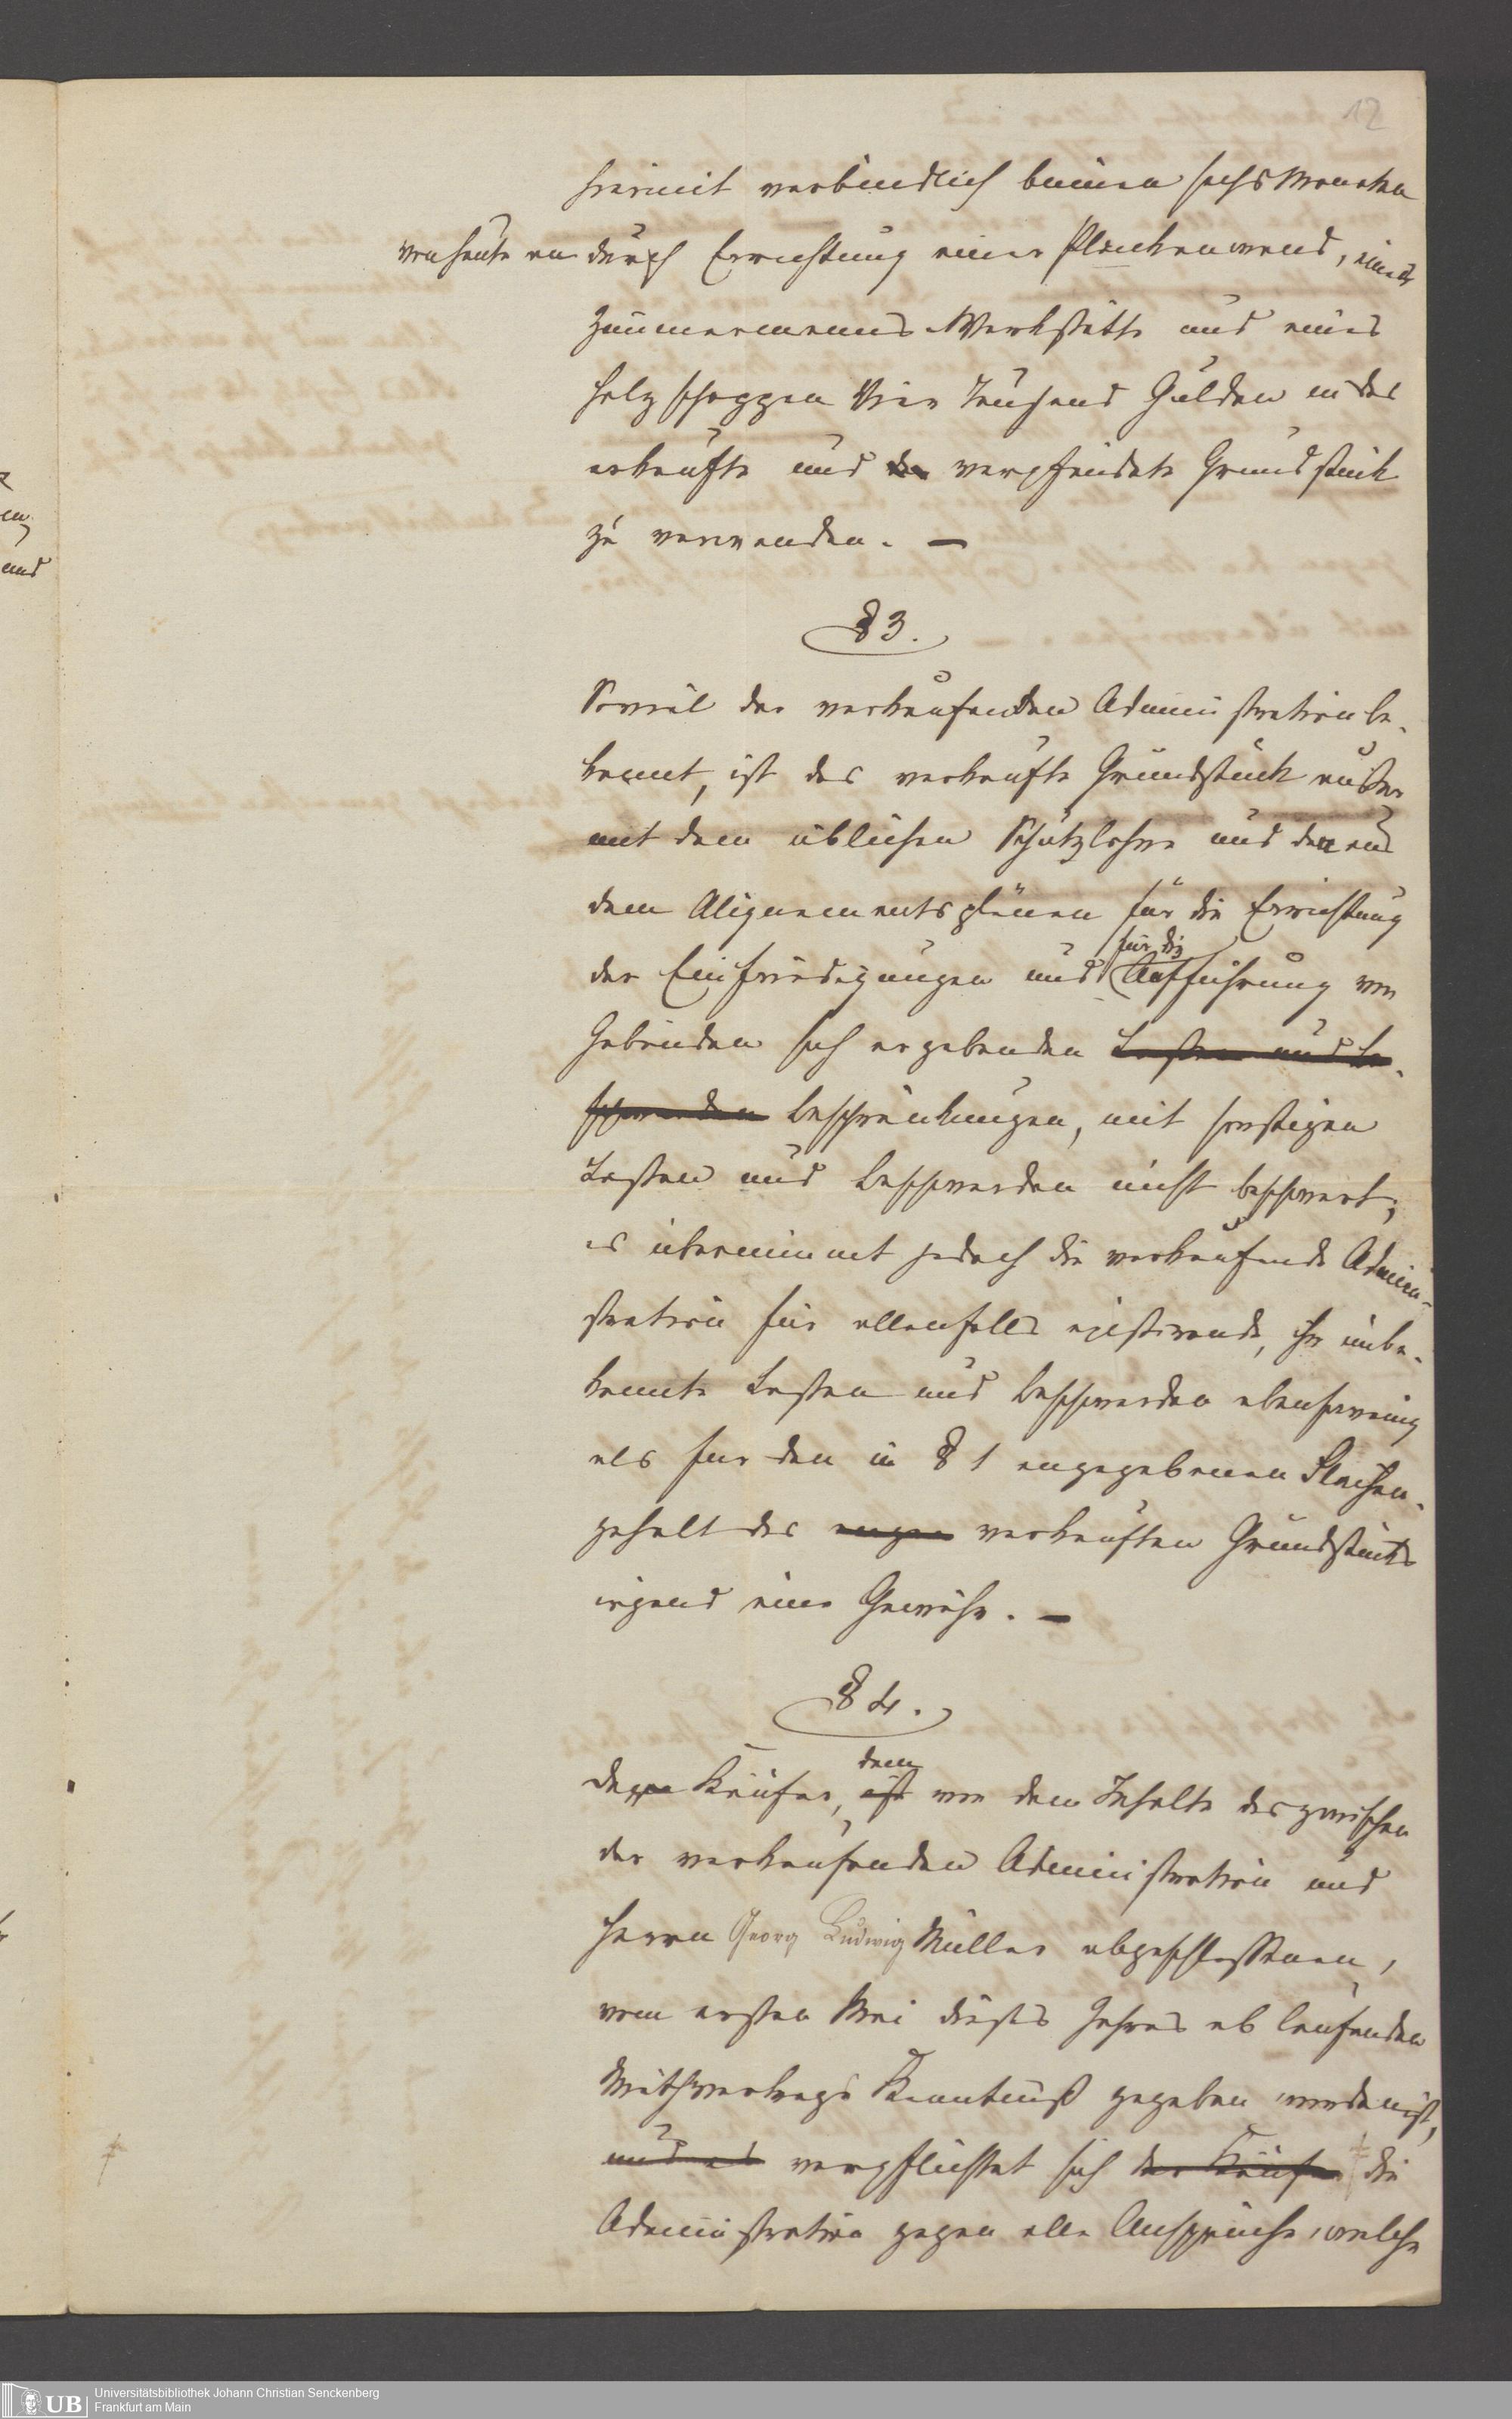 12
hiermit verbindlich binnen sechs Monaten
von heute an durch Errichtung einer Plankenwand, einer
Zimmermanns-Werkstätte und eines
Holzschoppen Vier Tausend Gulden in das
erkaufte und verpfändete Grundstück
zu verwenden. —
§ 3.
Soviel der verkaufenden Administration be-
kannt, ist das verkaufte Grundstück außer
mit dem üblichen Schützlohne und den aus
dem Alignementsplänen für die Errichtung
der Einfriedigungen und für die Aufführung von
Gebäuden sich ergebenden Lasten und Be-
schwerden Beschränkungen, mit sonstigen
Lasten und Beschwerden nicht beschwert;
es übernimmt jedoch die verkaufende Admini-
stration für allenfalls existirende, ihr unbe-
kannte Lasten und Beschwerden ebensowenig
als für den in § 1 angegebenen Flächen-
gehalt des verkauften Grundstücks
irgend eine Gewähr. —
§ 4.
Dem Käufer, ist dem von dem Inhalte des zwischen
der verkaufenden Administration und
Herrn Georg Ludwig Müller abgeschlossenen,
vom ersten Mai dieses Jahres ab laufenden
Miethvertrags Kenntniß gegeben worden ist,
und es verpflichtet sich der Käufer ‡ die
‡
Administration gegen alle Ansprüche, welche
en,
und
UB
Universitätsbibliothek Johann Christian Senckenberg
Frankfurt am Main